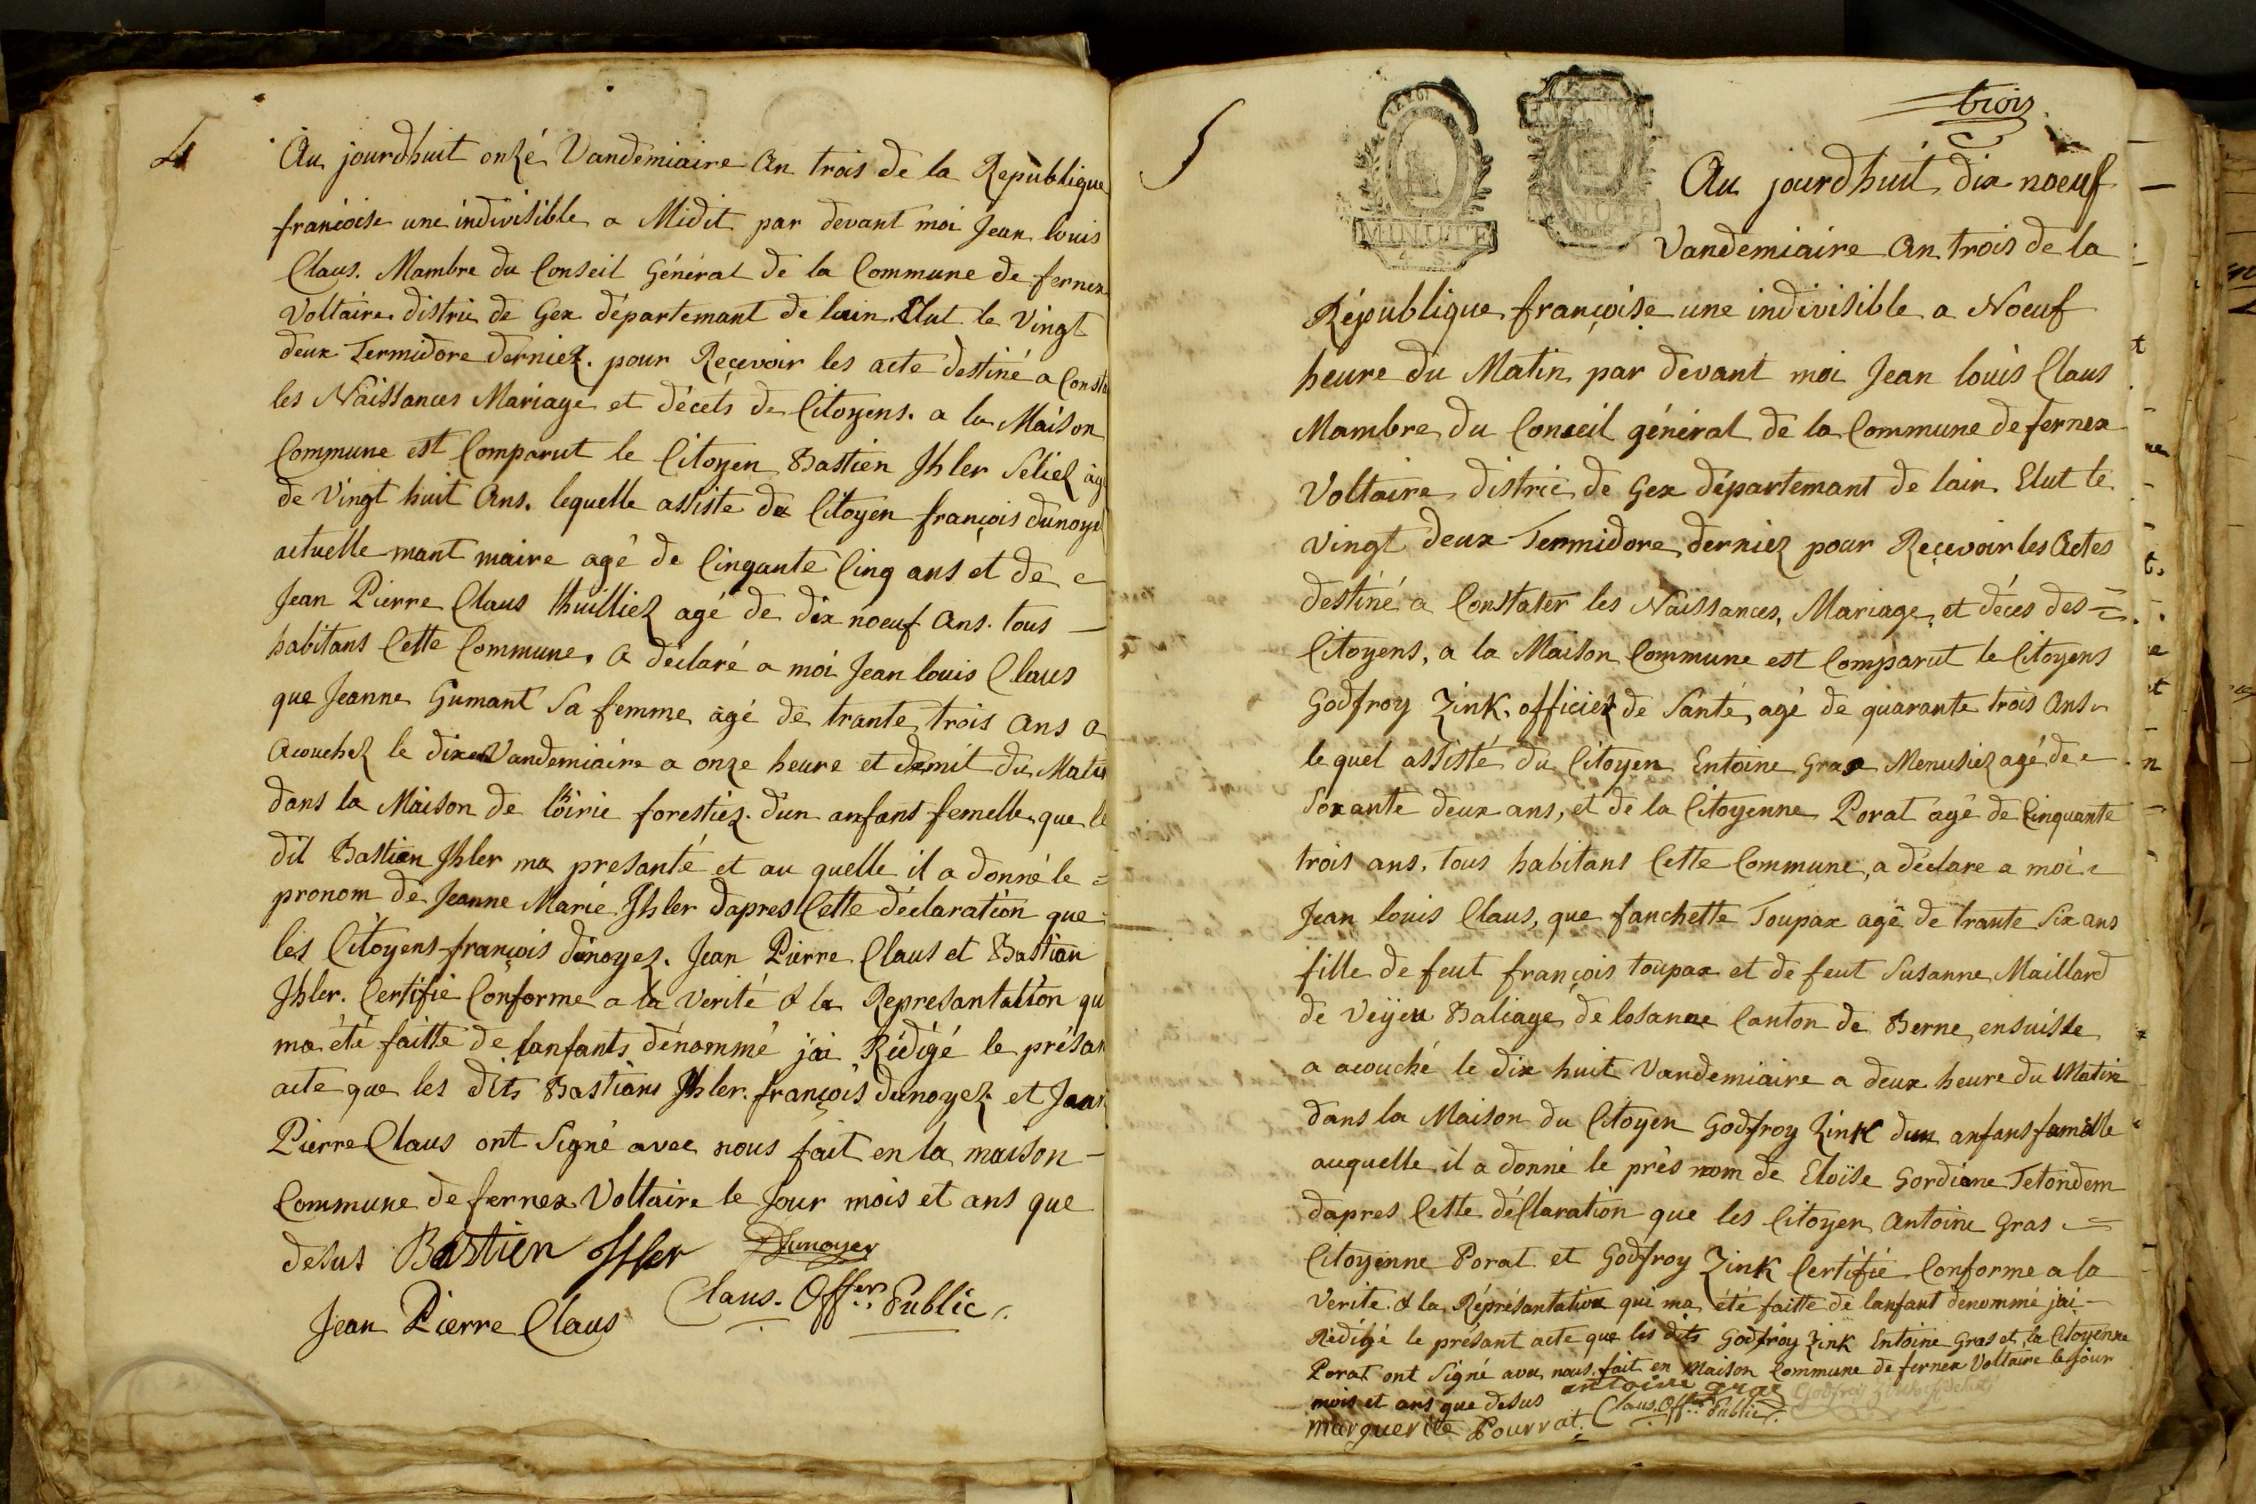 4
Au jourdhuit onzé Vandemiaire An trois de la Republique
françoise une indivisible a Midit par devant moi Jean louis
Claus. Mambre du Conseil Général de la Commune de fernex
Voltaire distric de Gex département de lain Elut le Vingt
deux Termidore dernier. pour Reçevoir les acte destiné a Consta
les Naissances Mariage et décéts de Citoyens. a la Maison
Commune est Comparut le Citoyen Bastien Ihler Seliez àgé
de Vingt huit Ans. lequelle assiste de Citoyen françois dunoye
actuelle mant maire agé de Cinquante Cinq ans et de
Jean Pierre Claus thuilliez agé de dix noeuf Ans. tous
habitans Cette Commune. a déclaré a moi Jean louis Claus
que Jeanne Gumant Sa femme agé de trante trois ans a
acouchez le dixe Vandemiaire a onze heure et demit du Matin
dans la Maison de forestiez. d'un anfans femelle. que le
dit Bastien Ihler ma presanté et au quelle il a donné le
pronom de Jeanne Marie Ihler dapres Cette déclaration que
les Citoyens françois dunoyez. Jean Pierre Claus et Bastian
Ihler. Certifié Conforme a la verité & la Represantation qu
ma été faitte de lanfants dénommé j'ai Rédigé le présan
acte que les dits Bastians Ihler. françois dunoyez et Jean
Pierre Claus ont Signé avec nous fait en la maison
Commune de fernex Voltaire le Jour mois et ans que
desus Bastien Ihler Dunoyer
Jean Pierre Claus Claus. Offer. Public
5
trois
MINUTE
4 S.
Au jourdhuit dix noeuf
Vandemiaire An trois de la
République françoise une indivisible a Noeuf
heure du Matin par devant moi Jean louis Claus
Mambre du Conseil général de la Commune de fernex
Voltaire distric de Gex département de lain. Elut le
Vingt deux Termidore derniez pour Reçevoir les Actes
destiné a Constater les Naissances, Mariage et déces des
Citoyens, a la Maison Commune est Comparut le Citoyens
Godfroy Zink, officiez de Santé, agé de quarante trois Ans
le quel assisté du Citoyen Entoine Gras Menusiez agé de
Soxante deux ans, et de la Citoyenne Porat agé de Cinquante
trois ans. tous habitans Cette Commune, a déclare a moi
Jean louis Claus, que fanchette Toupax agé de trante Six ans
fille de feut françois toupax et de feut Susanne Maillard
de Veÿeu Baliage de losanne Canton de Berne en suisse
a acouché le dix huit Vandemiaire a deux heure du Matin
dans la Maison du Citoyen Godfroy Zink dun anfans famelle
auquelle il a donné le près nom de Eloïse Gordiene Tetondem
dapres Cette déClaration que les Citoyen Antoine Gras
Citoyenne Porat et Godfroy Zink Certifié Conforme a la
Verite. & la Représantation qui ma été faitte de lanfant denommé jai
Rédigé le présant acte que les dits Godfroy Zink Entoine Gras et la Citoyenne
Porat ont Signé avec nous. fait en Maison Commune de fernex Voltaire le jour
mois et ans que desus antoine gras Godfroy Zink
marguerite Pourrat. Claus. Offer. Public